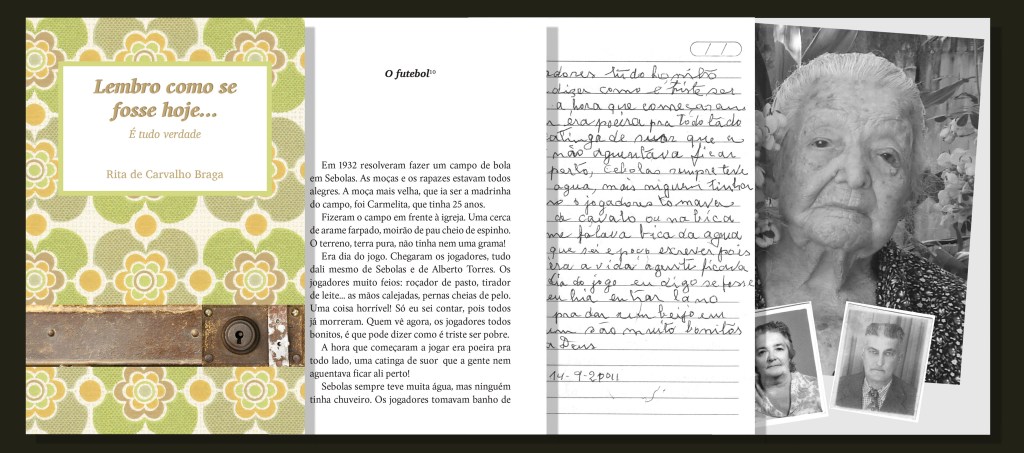 Lembro como se
fosse hoje...
É tudo verdade
Rita de Carvalho Braga
O futebol¹⁰
Em 1932 resolveram fazer um campo de bola
em Sebolas. As moças e os rapazes estavam todos
alegres. A moça mais velha, que ia ser a madrinha
do campo, foi Carmelita, que tinha 25 anos.
Fizeram o campo em frente à igreja. Uma cerca
de arame farpado, moirão de pau cheio de espinho.
O terreno, terra pura, não tinha nem uma grama!
Era dia do jogo. Chegaram os jogadores, tudo
dali mesmo de Sebolas e de Alberto Torres. Os
jogadores muito feios: roçador de pasto, tirador
de leite... as mãos calejadas, pernas cheias de pelo.
Uma coisa horrível! Só eu sei contar, pois todos
já morreram. Quem vê agora, os jogadores todos
bonitos, é que pode dizer como é triste ser pobre.
A hora que começaram a jogar era poeira pra
todo lado, uma catinga de suor que a gente nem
aguentava ficar ali perto!
Sebolas sempre teve muita água, mas ninguém
tinha chuveiro. Os jogadores tomavam banho de
dores tudo bonitõ
dizer como é triste ser
a hora que começaram
era poeira pra todo lado
atinga de suor que a
não aguentava ficar
perto, cebolas sempre teve
agua, mais niguem tinha
s jogadores tomava
de cavalo ou na bica
me falava bica da agua
que sei e poço escrever pois
era a vida agente ficava
dia do jogo eu digo se fosse
eu hia entrar la no
pra dar um beijo em
um são muito bonitos
a Deus
14-9-2011